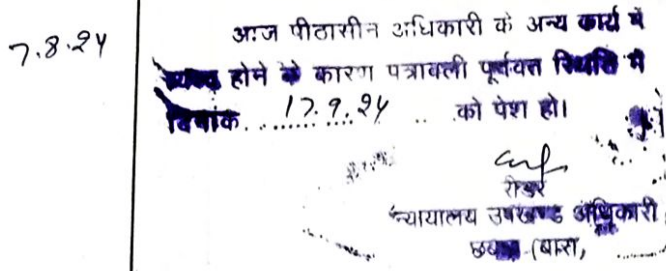 7.8.24
आज पीठासीन अधिकारी के अन्य कार्य में
व्यस्त होने के कारण पत्रावली पूर्ववत स्थिति में
दिनांक ........ 17.9.24 .. को पेश हो।
रीडर
न्यायालय उपखण्ड अधिकारी
छबड़ा (बारां)